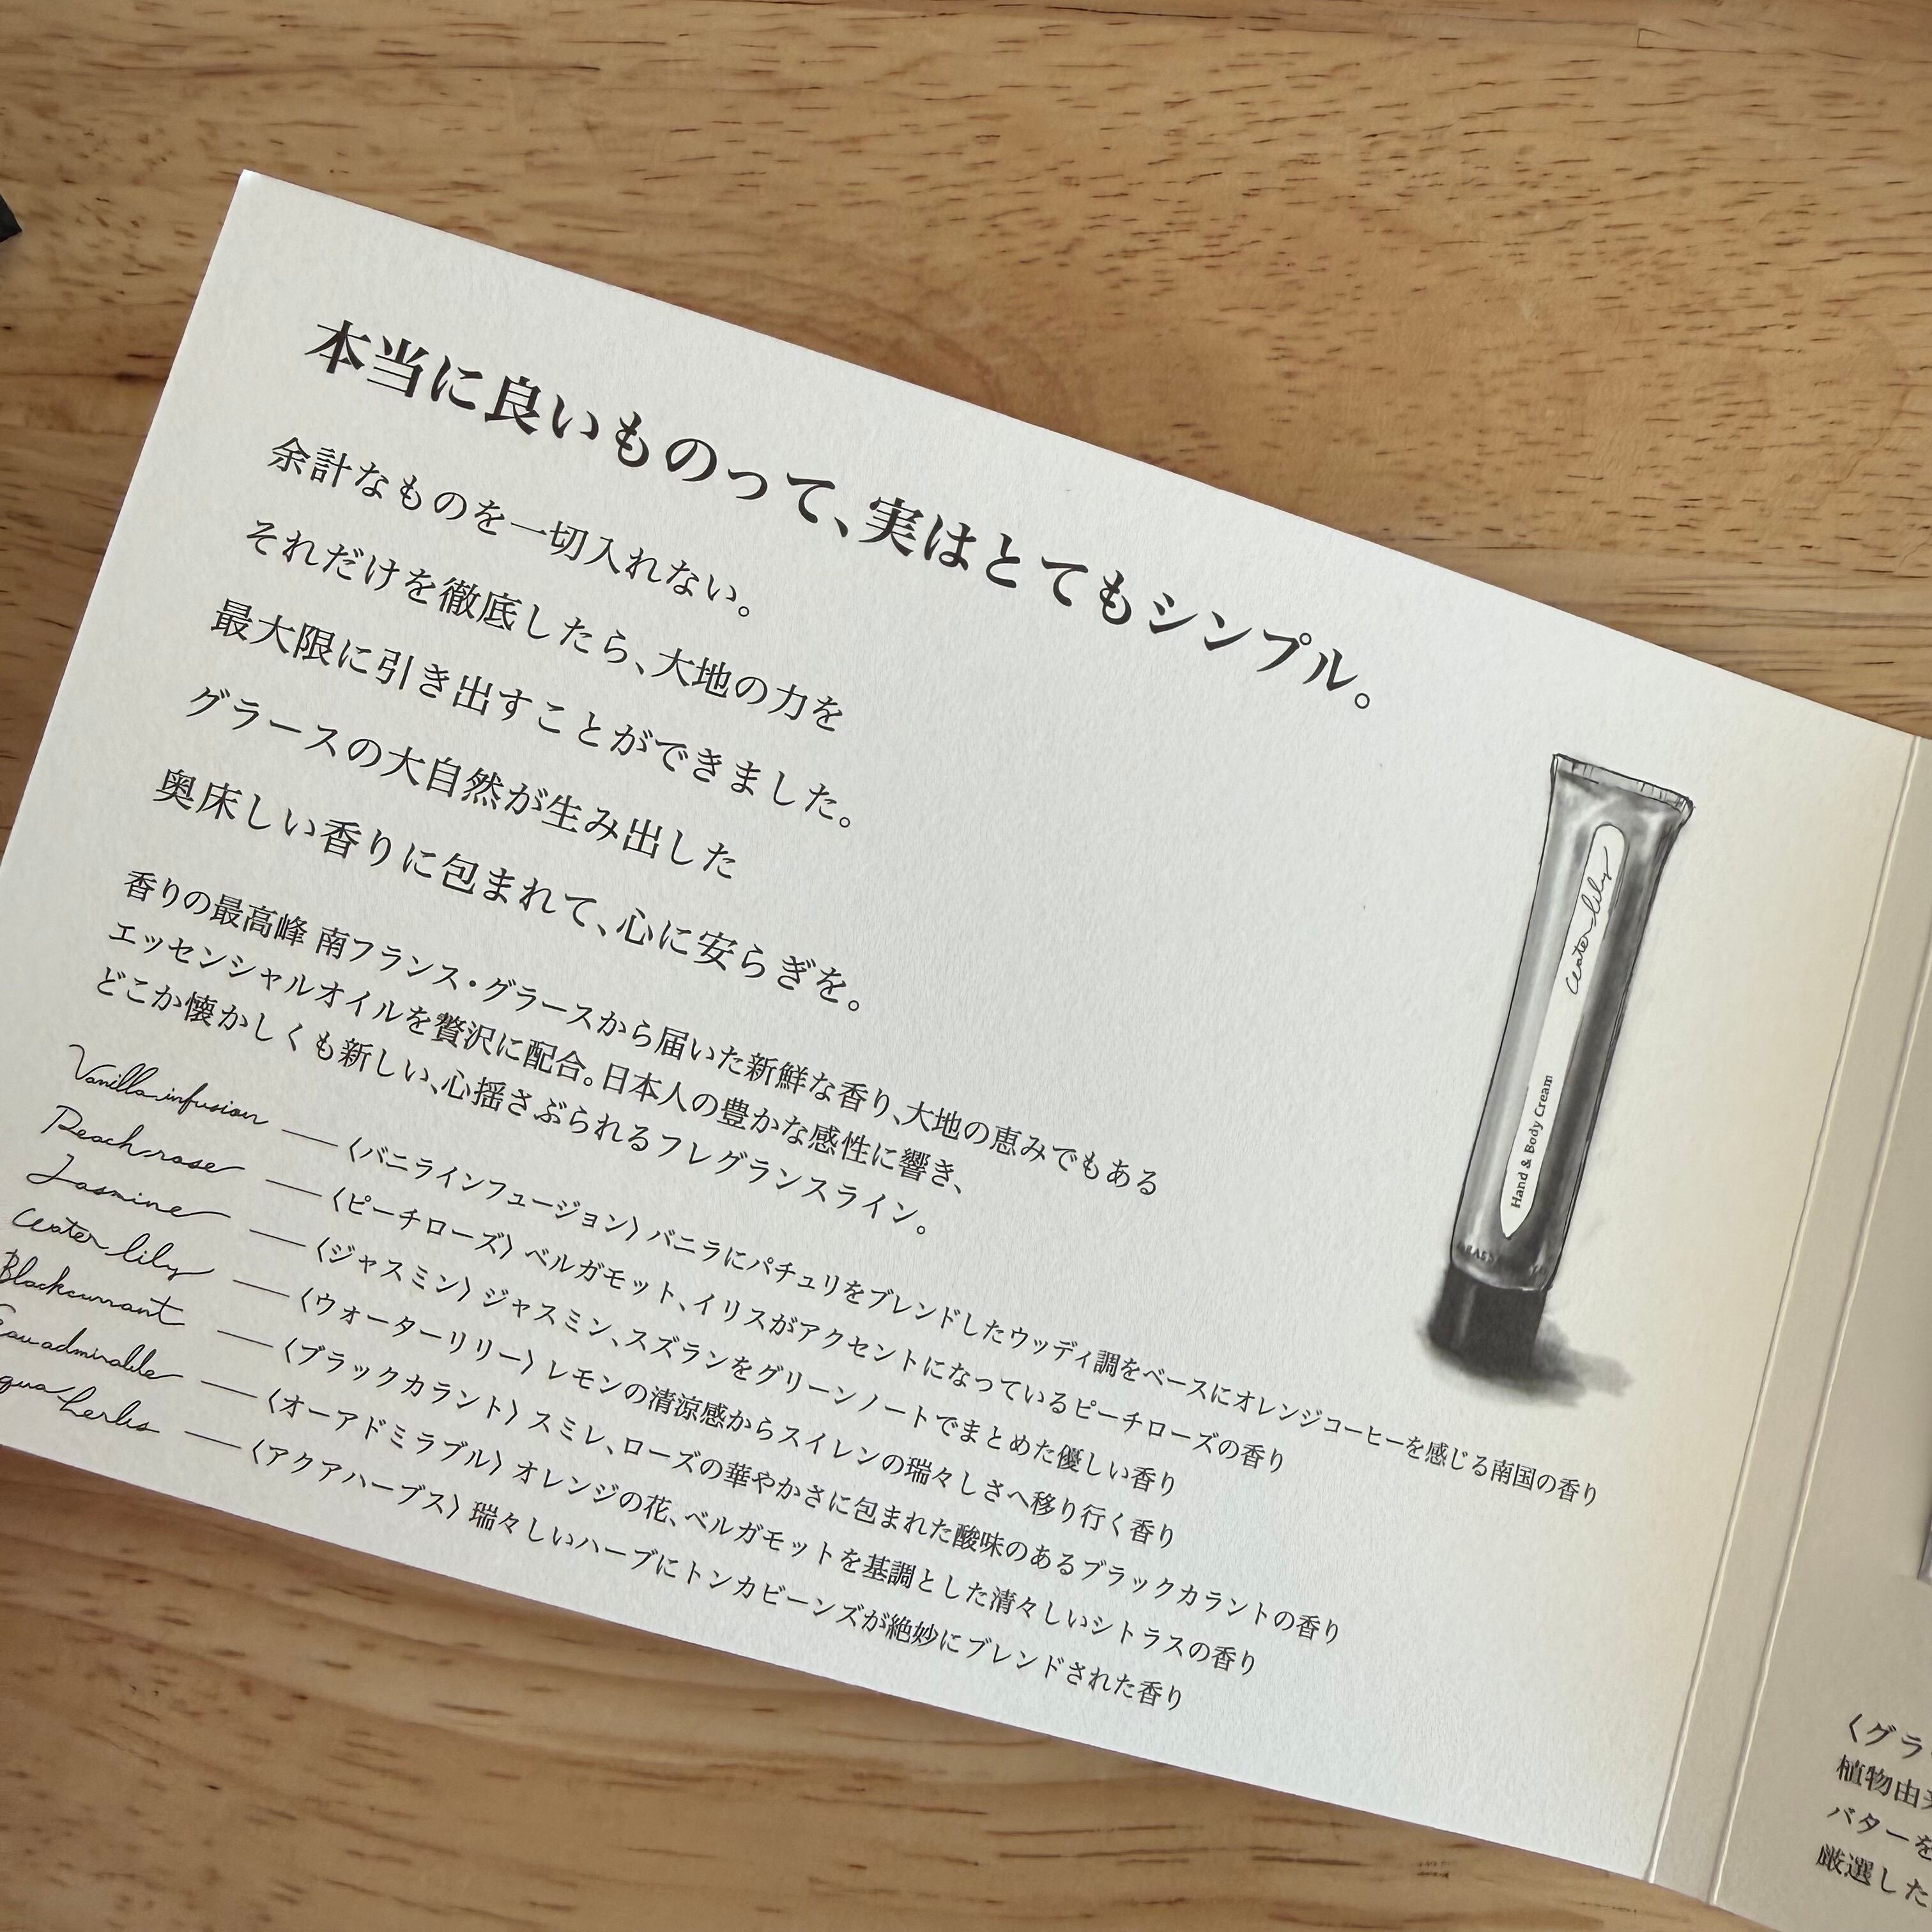 本当に良いものって、実はとてもシンプル。
余計なものを一切入れない。
それだけを徹底したら、大地の力を
最大限に引き出すことができました。
グラースの大自然が生み出した
奥床しい香りに包まれて、心に安らぎを。
香りの最高峰 南フランス・グラースから届いた新鮮な香り、大地の恵みでもある
エッセンシャルオイルを贅沢に配合。日本人の豊かな感性に響き、
どこか懐かしくも新しい、心揺さぶられるフレグランスライン。
Vanilla infusion ── 〈バニラインフュージョン〉 バニラにパチュリをブレンドしたウッディ調をベースにオレンジコーヒーを感じる南国の香り
Peach rose ── 〈ピーチローズ〉 ベルガモット、イリスがアクセントになっているピーチローズの香り
Jasmine ── 〈ジャスミン〉 ジャスミン、スズランをグリーンノートでまとめた優しい香り
Water lily ── 〈ウォーターリリー〉 レモンの清涼感からスイレンの瑞々しさへ移り行く香り
Blackcurrant ── 〈ブラックカラント〉 スミレ、ローズの華やかさに包まれた酸味のあるブラックカラントの香り
Eau admirable ── 〈オーアドミラブル〉 オレンジの花、ベルガモットを基調とした清々しいシトラスの香り
qua herbs ── 〈アクアハーブス〉 瑞々しいハーブにトンカビーンズが絶妙にブレンドされた香り
Water lily
Hand & Body Cream
〈グラ
植物由
バターを
厳選した